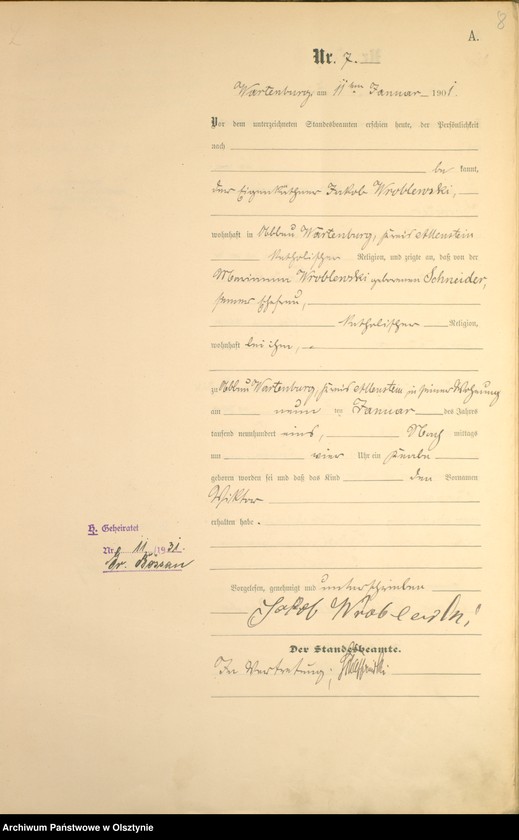 8
A.
Nr. 7.
Wartenburg, am 11ten Januar 1901.
Vor dem unterzeichneten Standesbeamten erschien heute, der Persönlichkeit
nach
be kannt,
der Eigenkäthner Jakob Wroblewski,
wohnhaft in Abbau Wartenburg, Kreis Allenstein
katholischer Religion, und zeigte an, daß von der
Wroblewski geborenen Schneider,
seiner Ehefrau,
katholischer Religion,
wohnhaft bei ihm,
zu Abbau Wartenburg, Kreis Allenstein in seiner Wohnung
am neun ten Januar des Jahres
tausend neunhundert eins, Nach mittags
um vier Uhr ein Knabe
geboren worden sei und daß das Kind den Vornamen
Wiktor
erhalten habe.
H. Geheiratet
Nr. 11 /1931.
Vorgelesen, genehmigt und unterschrieben
Jakob Wroblewski
Der Standesbeamte.
In Vertretung:
Archiwum Państwowe w Olsztynie